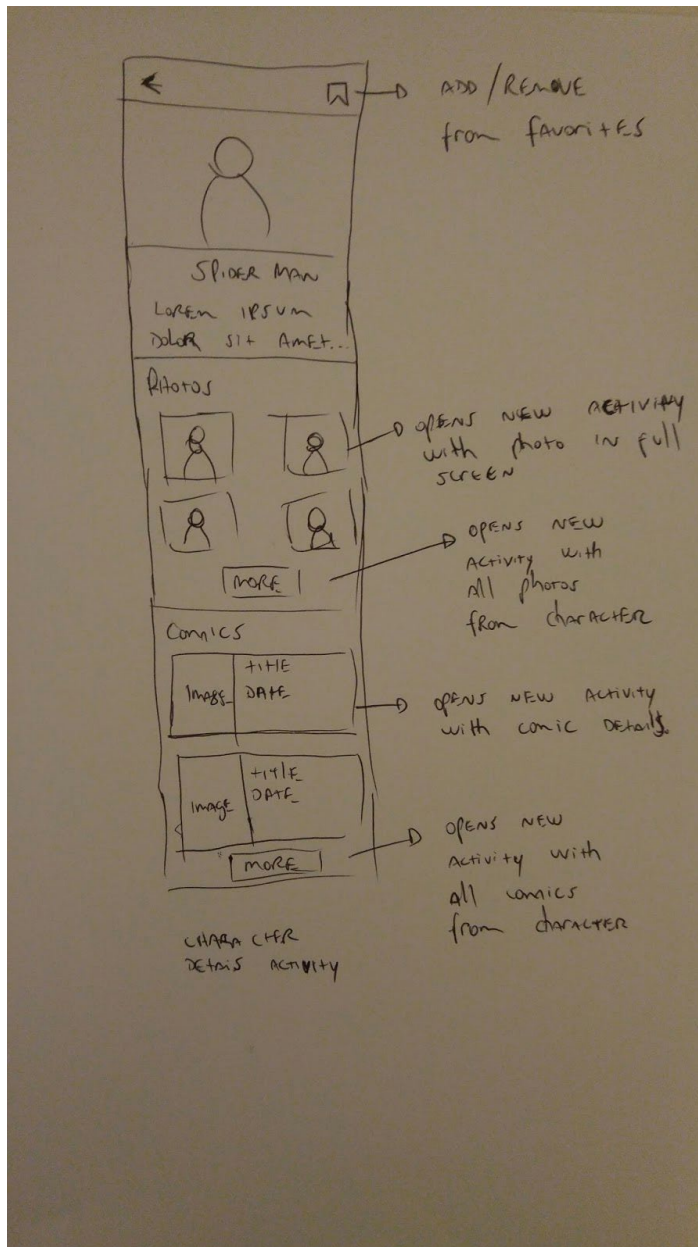 ADD/REMOVE
from fAVoritES
SPIDER MAN
LOREM IPSUM
DOLOR Sit AMET...
PHOTOS
OPENS NEW ACTIVITY
with photo IN full
SCREEN
OPENS NEW
ACtivity with
All photos
fRom chaRACTER
MORE
COMICS
TITLE
Image
DATE
OPENS NEW ACtivity
with comic DEtAilS
TITLE
DATE
IMAGE
OPENS NEW
Activity with
All comics
from chARACTER
MORE
CHARACTER
DETAIS ACTIVITY